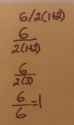 6/2(1+2)
6
2(1+2)
6
2(3)
6
6 =1